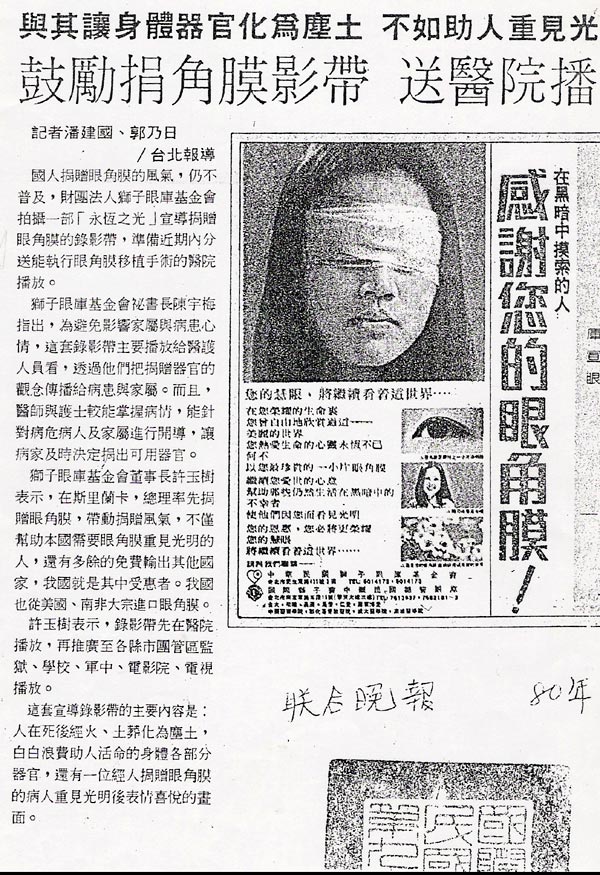 與其讓身體器官化為塵土 不如助人重見光
鼓勵捐角膜影帶 送醫院播
記者潘建國、郭乃日
/台北報導
國人捐贈眼角膜的風氣,仍不
普及,財團法人獅子眼庫基金會
拍攝一部「永恆之光」宣導捐贈
眼角膜的錄影帶,準備近期內分
送能執行眼角膜移植手術的醫院
播放。
獅子眼庫基金會祕書長陳宇梅
指出,為避免影響家屬與病患心
情,這套錄影帶主要播放給醫護
人員看,透過他們把捐贈器官的
觀念傳播給病患與家屬。而且,
醫師與護士較能掌握病情,能針
對病危病人及家屬進行開導,讓
病家及時決定捐出可用器官。
獅子眼庫基金會董事長許玉樹
表示,在斯里蘭卡,總理率先捐
贈眼角膜,帶動捐贈風氣,不僅
幫助本國需要眼角膜重見光明的
人,還有多餘的免費輸出其他國
家,我國就是其中受惠者。我國
也從美國、南非大宗進口眼角膜。
許玉樹表示,錄影帶先在醫院
播放,再推廣至各縣市團管區監
獄、學校、軍中、電影院、電視
播放。
這套宣導錄影帶的主要內容是:
人在死後經火、土葬化為塵土,
白白浪費助人活命的身體各部分
器官,還有一位經人捐贈眼角膜
的病人重見光明後表情喜悅的畫
面。
在黑暗中摸索的人
感謝您的眼角膜!
您的慧眼,將繼續看着這世界⋯⋯
在您榮耀的生命裏
您曾自由地欣賞過這——
美麗的世界
您熱愛生命的心靈永恆不已
何不
以您最珍貴的一小片眼角膜
繼續您愛世的心意
幫助那些仍然生活在黑暗中的
不幸者
使他們因您而看見光明
您的恩惠,您必將更榮耀
您的慧眼
將繼續看着這世界⋯⋯
請與我們聯絡——
庫
宣
眼
联合晚報 80年